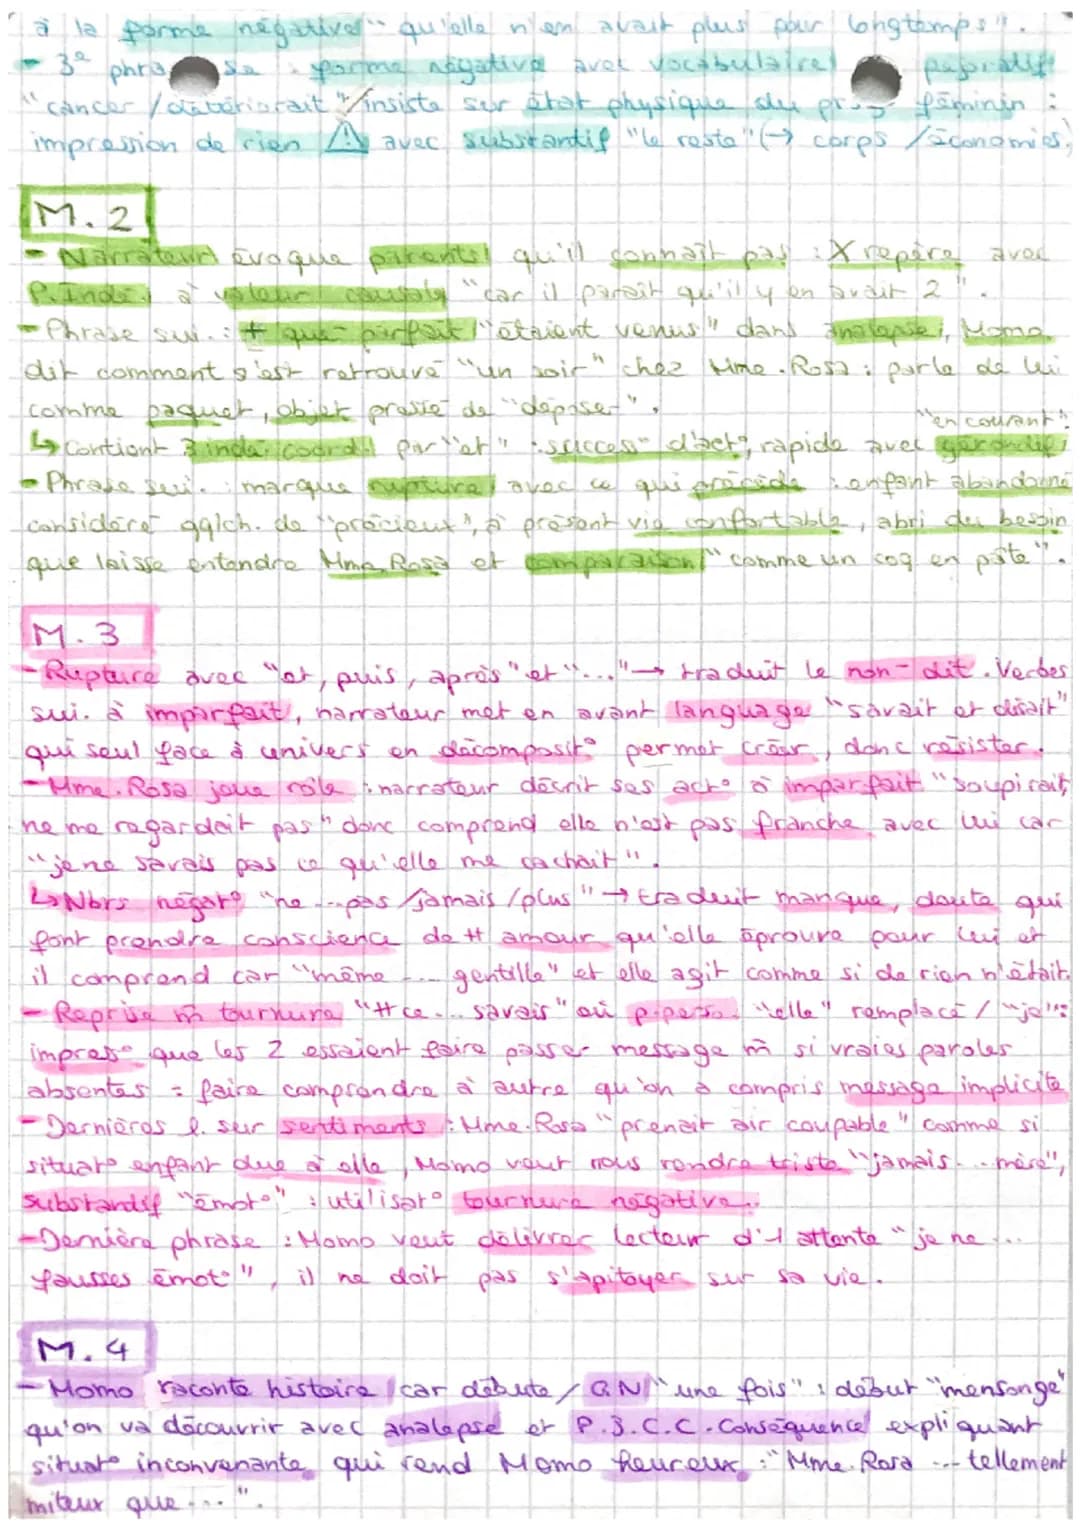 à la forme négative "qu'elle n'en avait plus pour longtemps".
- 3e phrase : forme négative avec vocabulaire péjoratif
"cancer / détériorait" insiste sur état physique du féminin :
impression de rien ⚠ avec substantif "le reste" (→ corps / économies)
M. 2
- Narrateur évoque parents qu'il connaît pas : X repère avec
P. Indé. à valeur causale "car il paraît qu'il y en avait 2".
- Phrase sui. : + que parfait "étaient venus" dans analepse, Momo
dit comment s'est retrouvé "un soir" chez Mme. Rosa : parle de lui
comme paquet, objet presse de "déposer".
"en courant"
↳ Contient 3 indé. coord. par "et" : success° d'act°, rapide avec gérondif
- Phrase sui. : marque rupture avec ce qui précède : enfant abandonné
considéré qqlch. de "précieux", à présent vie confortable, abri du besoin
que laisse entendre Mme Rosa et comparaison "comme un coq en pâte".
M. 3
- Rupture avec "et, puis, après" et "..." → traduit le non-dit. Verbes
sui. à imparfait, narrateur met en avant language "savait et disait"
qui seul face à univers en décomposit° permet créer, donc résister.
- Mme. Rosa joue rôle : narrateur décrit ses act° à imparfait "soupirait,
ne me regardait pas" donc comprend elle n'est pas franche avec lui car
"je ne savais pas ce qu'elle me cachait".
↳ Nbrs négat° "ne ... pas / jamais / plus" → traduit manque, doute qui
font prendre conscience de tt amour qu'elle éprouve pour lui et
il comprend car "même ... gentille" et elle agit comme si de rien n'était.
- Reprise m̂ tournure "tt ce ... savais" où p. perso. "elle" remplacé / "je" :
impress° que les 2 essaient faire passer message m̂ si vraies paroles
absentes = faire comprendre à autre qu'on a compris message implicite
- Dernières l. sur sentiments : Mme. Rosa "prenait air coupable" comme si
situat° enfant due à elle, Momo veut nous rendre triste "jamais ... mère",
substantif "émot°" : utilisat° tournure négative.
- Dernière phrase : Momo veut délivrer lecteur d'1 attente "je ne ...
fausses émot°", il ne doit pas s'apitoyer sur sa vie.
M. 4
- Momo raconte histoire car débute / G.N "une fois" : début "mensonge"
qu'on va découvrir avec analepse et P.S.C.C. Conséquence expliquant
situat° inconvenante qui rend Momo heureux : "Mme. Rosa ... tellement
miteux que ...".